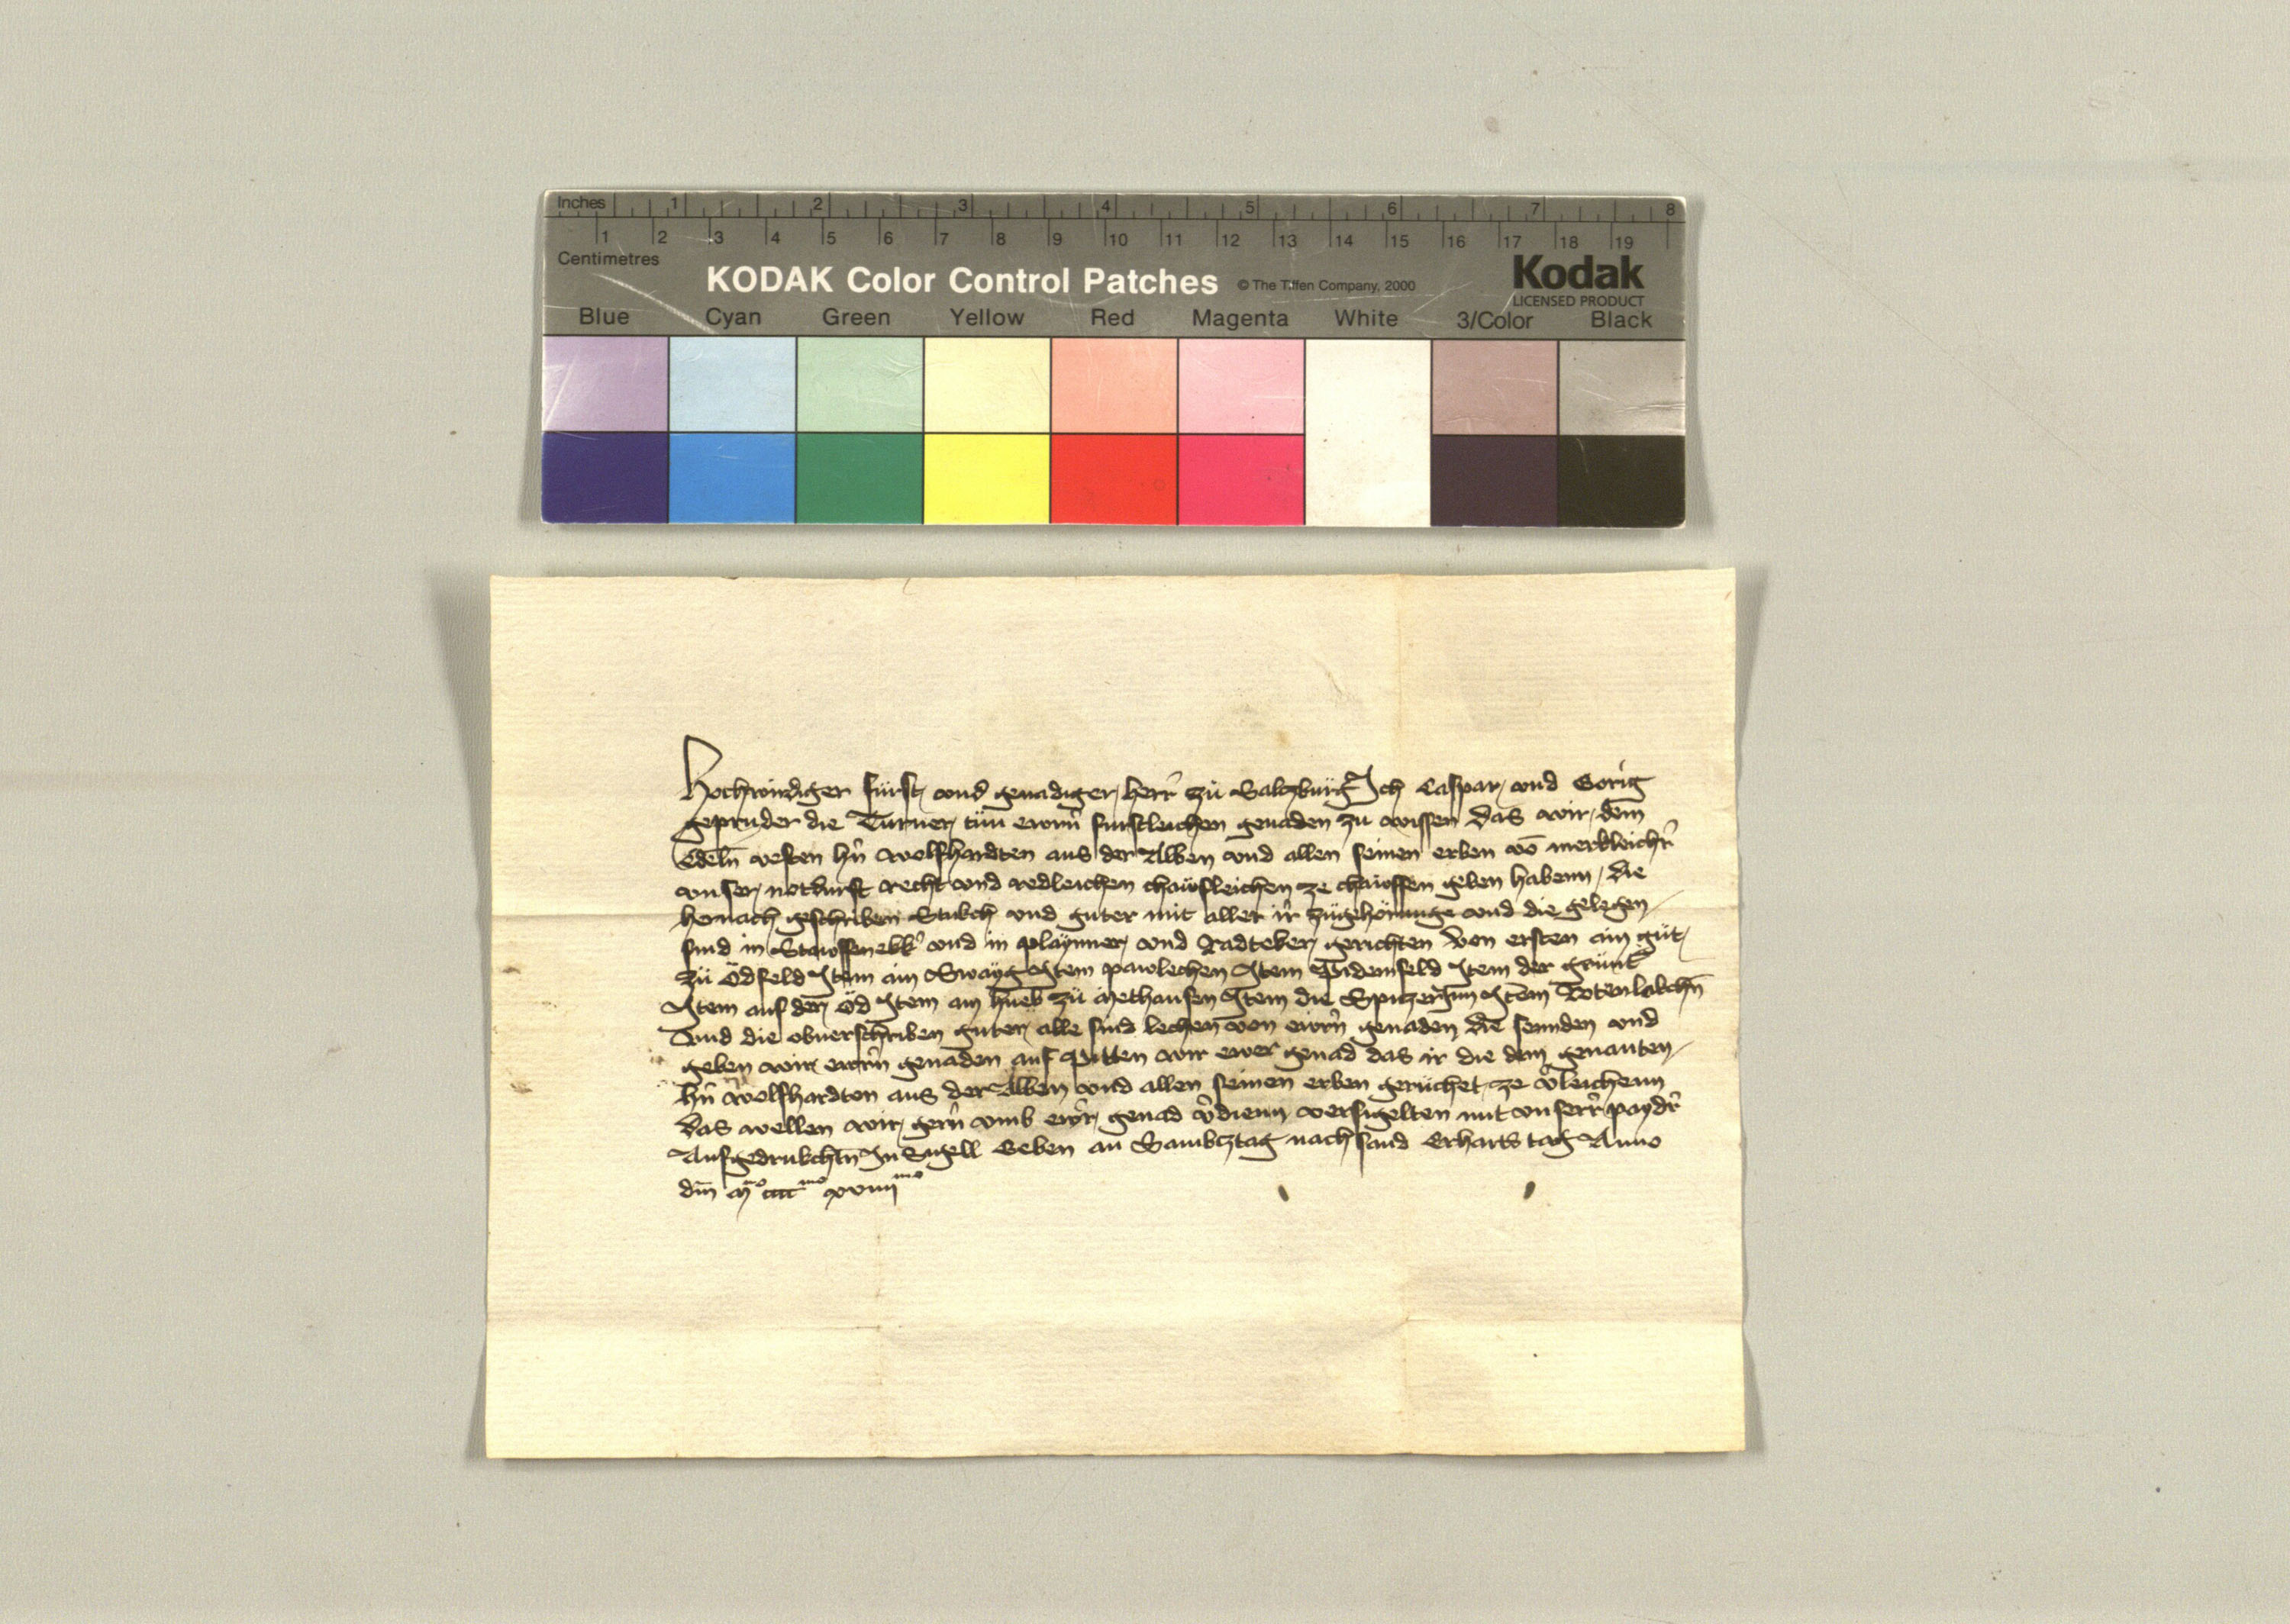 Inches 1 2 3 4 5 6 7 8
1 2 3 4 5 6 7 8 9 10 11 12 13 14 15 16 17 18 19
Centimetres
KODAK Color Control Patches © The Tiffen Company, 2000 Kodak
LICENSED PRODUCT
Blue Cyan Green Yellow Red Magenta White 3/Color Black
Hochwirdiger fürst und genadiger herr zü Salczbürg Ich Caspar und Görig
geprüder die Turner tün ewrn fürstleichen genaden zu wissen das wir dem
Edeln vesten hn Wolfhardten aus der Alben und allen seinen erben vō merkleichr
unser notdurft recht und redleichen chaüfleichen ze chauffen geben habenn die
hernach geschriben Stukch und guter mit aller ir zügehörunge und die gelegen
sind in Stauffenekk und in playnner und Radteker gerichten von ersten ain güt
zü Ödfeld Item ain Swayg Item pawlechen Item Item der
Item auf der Öd Item ain hueb zü Methausen Item die Item
Und die obuerschriben guter alle sind lechen von ewrn genaden die sennden und
geben wir ewrn genaden auf pitten wir ewer genad das ir die dem genanten
hn Wolfhardten aus der Alben und allen seinen erben gerüchet ze vleichenn
das wellen wir gern umb ewr genad vdienn versigelten mit unserr paydr
Aufgedrukchtn Insigell Geben an Sambcztag nach sand Erharts tag Anno
dm mo cccc mo xviiii mo